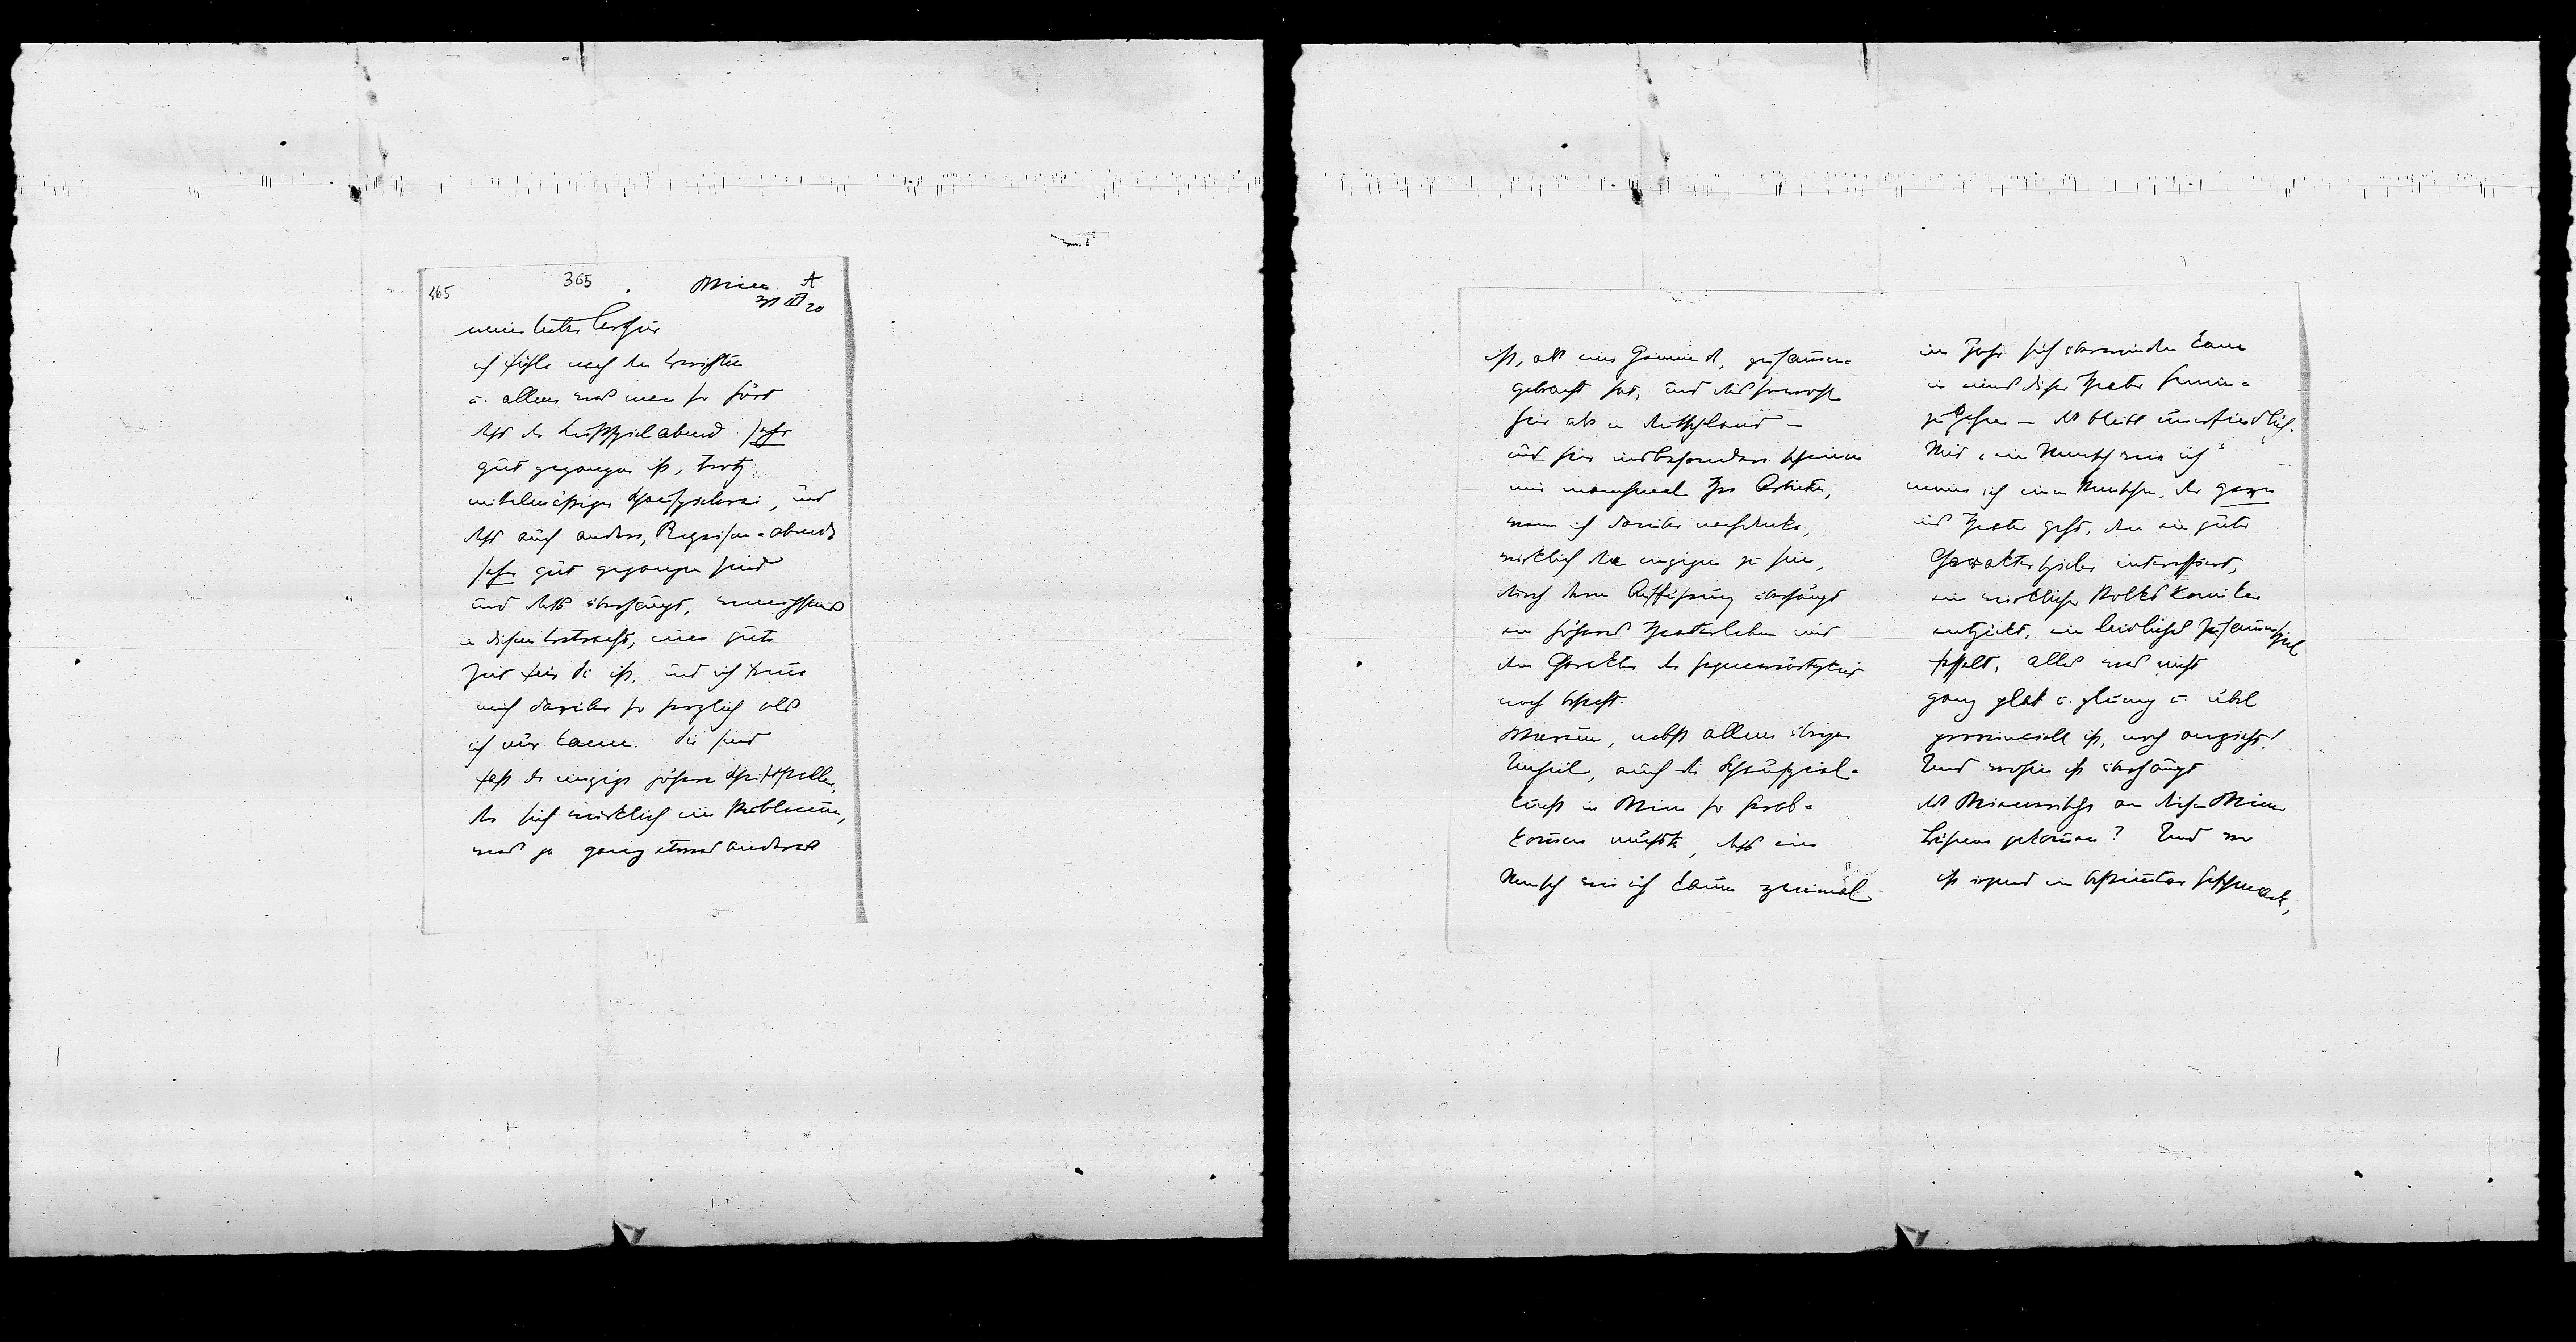 465
365
Wien
31 III 20
mein lieber Arthur
ich fühle nach den Berichten
u. allem was man so hört
dass der Lustspielabend sehr
gut gegangen ist, trotz
mittelmässiger Schauspielerei, und
dass auch andere, Reprisen-abende
sehr gut gegangen sind
und dass überhaupt, wenigstens
in dieser Betracht, eine gute
Zeit für Sie ist, und ich freue
mich darüber so herzlich als
ich nur kann. Sie sind
fast der einzige höhere Schriftsteller,
der sich wirklich ein Publicum,
was ja ganz etwas anderes
ist, als eine Gemeinde, zusammen-
gebracht hat, und das sowohl
hier als in Deutschland –
und hier insbesondere scheinen
mir manchmal Ihre Arbeiten,
wenn ich darüber nachdenke,
wirklich die einzigen zu sein,
durch deren Aufführung überhaupt
ein höheres Theaterleben mit
dem Charakter der Gegenwärtigkeit
noch besteht.
Warum, nebst allem übrigen
Unheil, auch die Schauspiel-
kunst in Wien so herab-
kommen musste, dass ein
Mensch wie ich kaum zweimal
im Jahr sich überwinden kann
in eines dieser Theater hinein-
zugehen – das bleibt unerfindlich.
Mit „ein Mensch wie ich“
meine ich einen Menschen, der gern
ins Theater geht, den ein guter
Charakterspieler interessiert,
ein wirklicher Volkskomiker
entzückt, ein leidliches Zusammenspiel
fesselt, alles was nicht
ganz glatt u. glänzig u. übel
provinciell ist, noch anzieht.
Und wohin ist überhaupt
das Wienerische an diesen Wiener
Bühnen gekommen? Und wo
ist irgend ein bestimmter Geschmack,